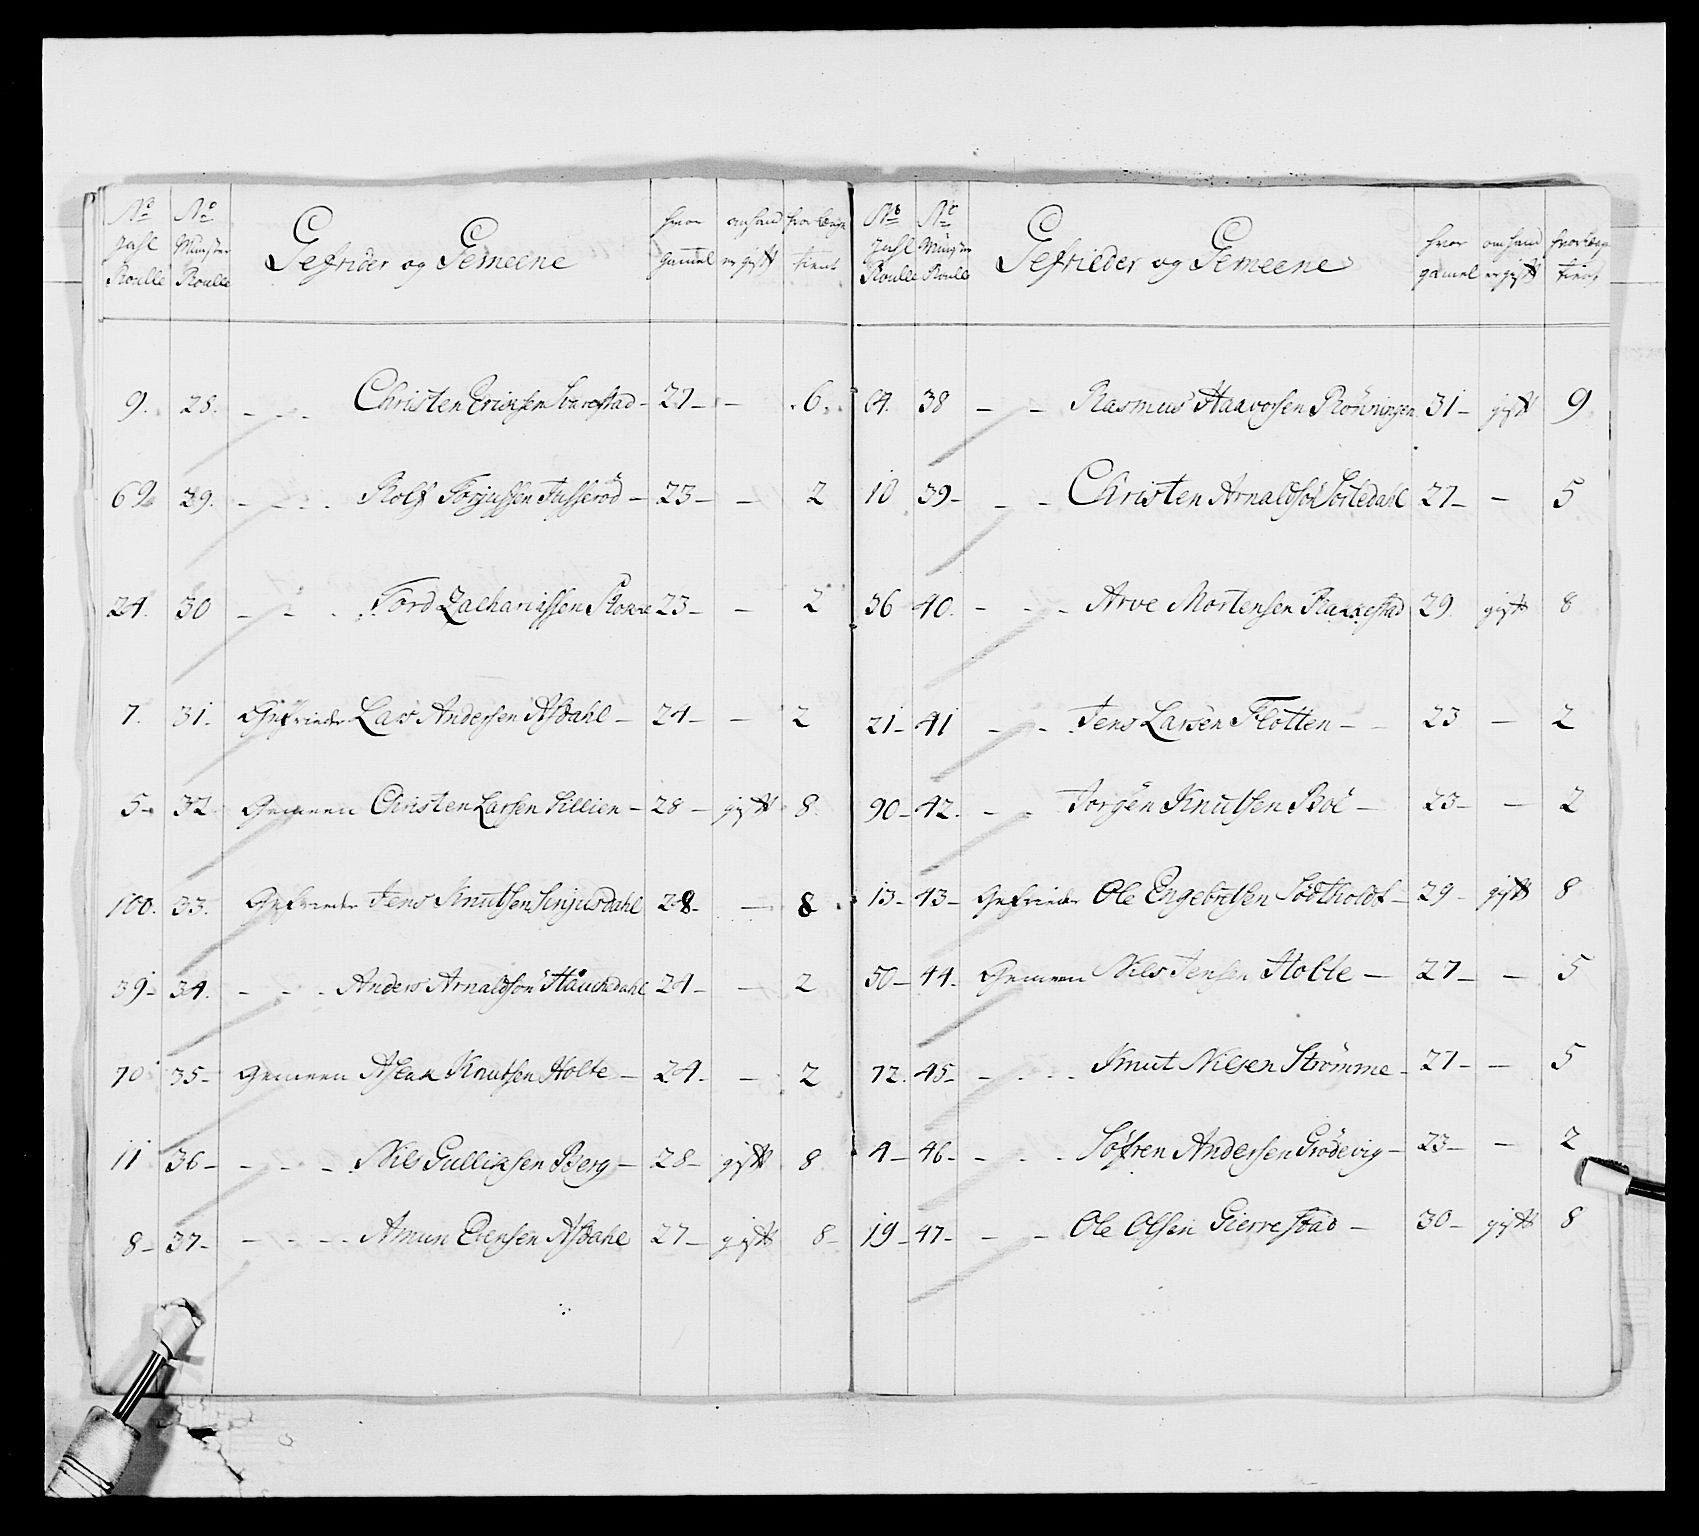 No Zahl Roulle | No Mynster Roulle | Gefrider og Gemeene | hvor gammel | om hand er gift | hvor længe tient
9. | 28. | - - - Christen Erichsen | 27 - | - | 6.
69. | 29. | - - - Rolf Torjussen Fusseröd - | 23 - | - | 2
24. | 30 | - - - Tord Zachariassen | 23 - | - | 2
7. | 31. | Gefrieder Lars Andersen Asdahl - | 24 - | - | 2
5 - | 32. | Gemeen Christen Larsen Lillien - | 28 - | gift | 8.
100. | 33. | Gefrieder Jens Knutsen Sinjusdahl | 28 - | - | 8
39 - | 34. | - - - Anders Arnaldsön Hauchdahl | 24 - | - | 2
70 | 35 - | Gemeen Aslak Knutsen Holte - | 24 - | - | 2
11 | 36 - | - - - Nils Gulliksen Berg - | 28 - | gift | 8
8 - | 37 - | - - - Amun Ebensen Asdahl | 27 - | gift | 8 -
No Zahl Roulle | No Münster Roulle | Gefrieder og Gemeene | hvor gamel | om hand er gift | hvor længe tient
64. | 38 | - - Rasmus Haavorsen Rönningen | 31 - | gift | 9
10 | 39 - | - - Christen Arnaldsön Sortedahl | 27 - | - | 5
36 | 40. | - - - Arve Mortensen Rakkestad | 29 | gift | 8
21 - | 41 | - - Jens Larsen Flotten - | 23 | - | 2
90 - | 42. | - - Jorgen Knutsen Böe - | 23 - | - | 2
13 - | 43 - | Gefrieder Ole Engebretsen Södtholdt - | 29 - | gift | 8
50 - | 44. | Gemeen Nils Jensen Holte - | 27 - | - | 5
72. | 45 - | - - - Knut Nilsen Strömme - | 27 - | - | 5
4 - | 46 - | - - - Söfren Andersen Grödevig - | 23 - | - | 2
19 - | 47 - | - - Ole Olsen Gierrestad - | 30 - | gift | 8